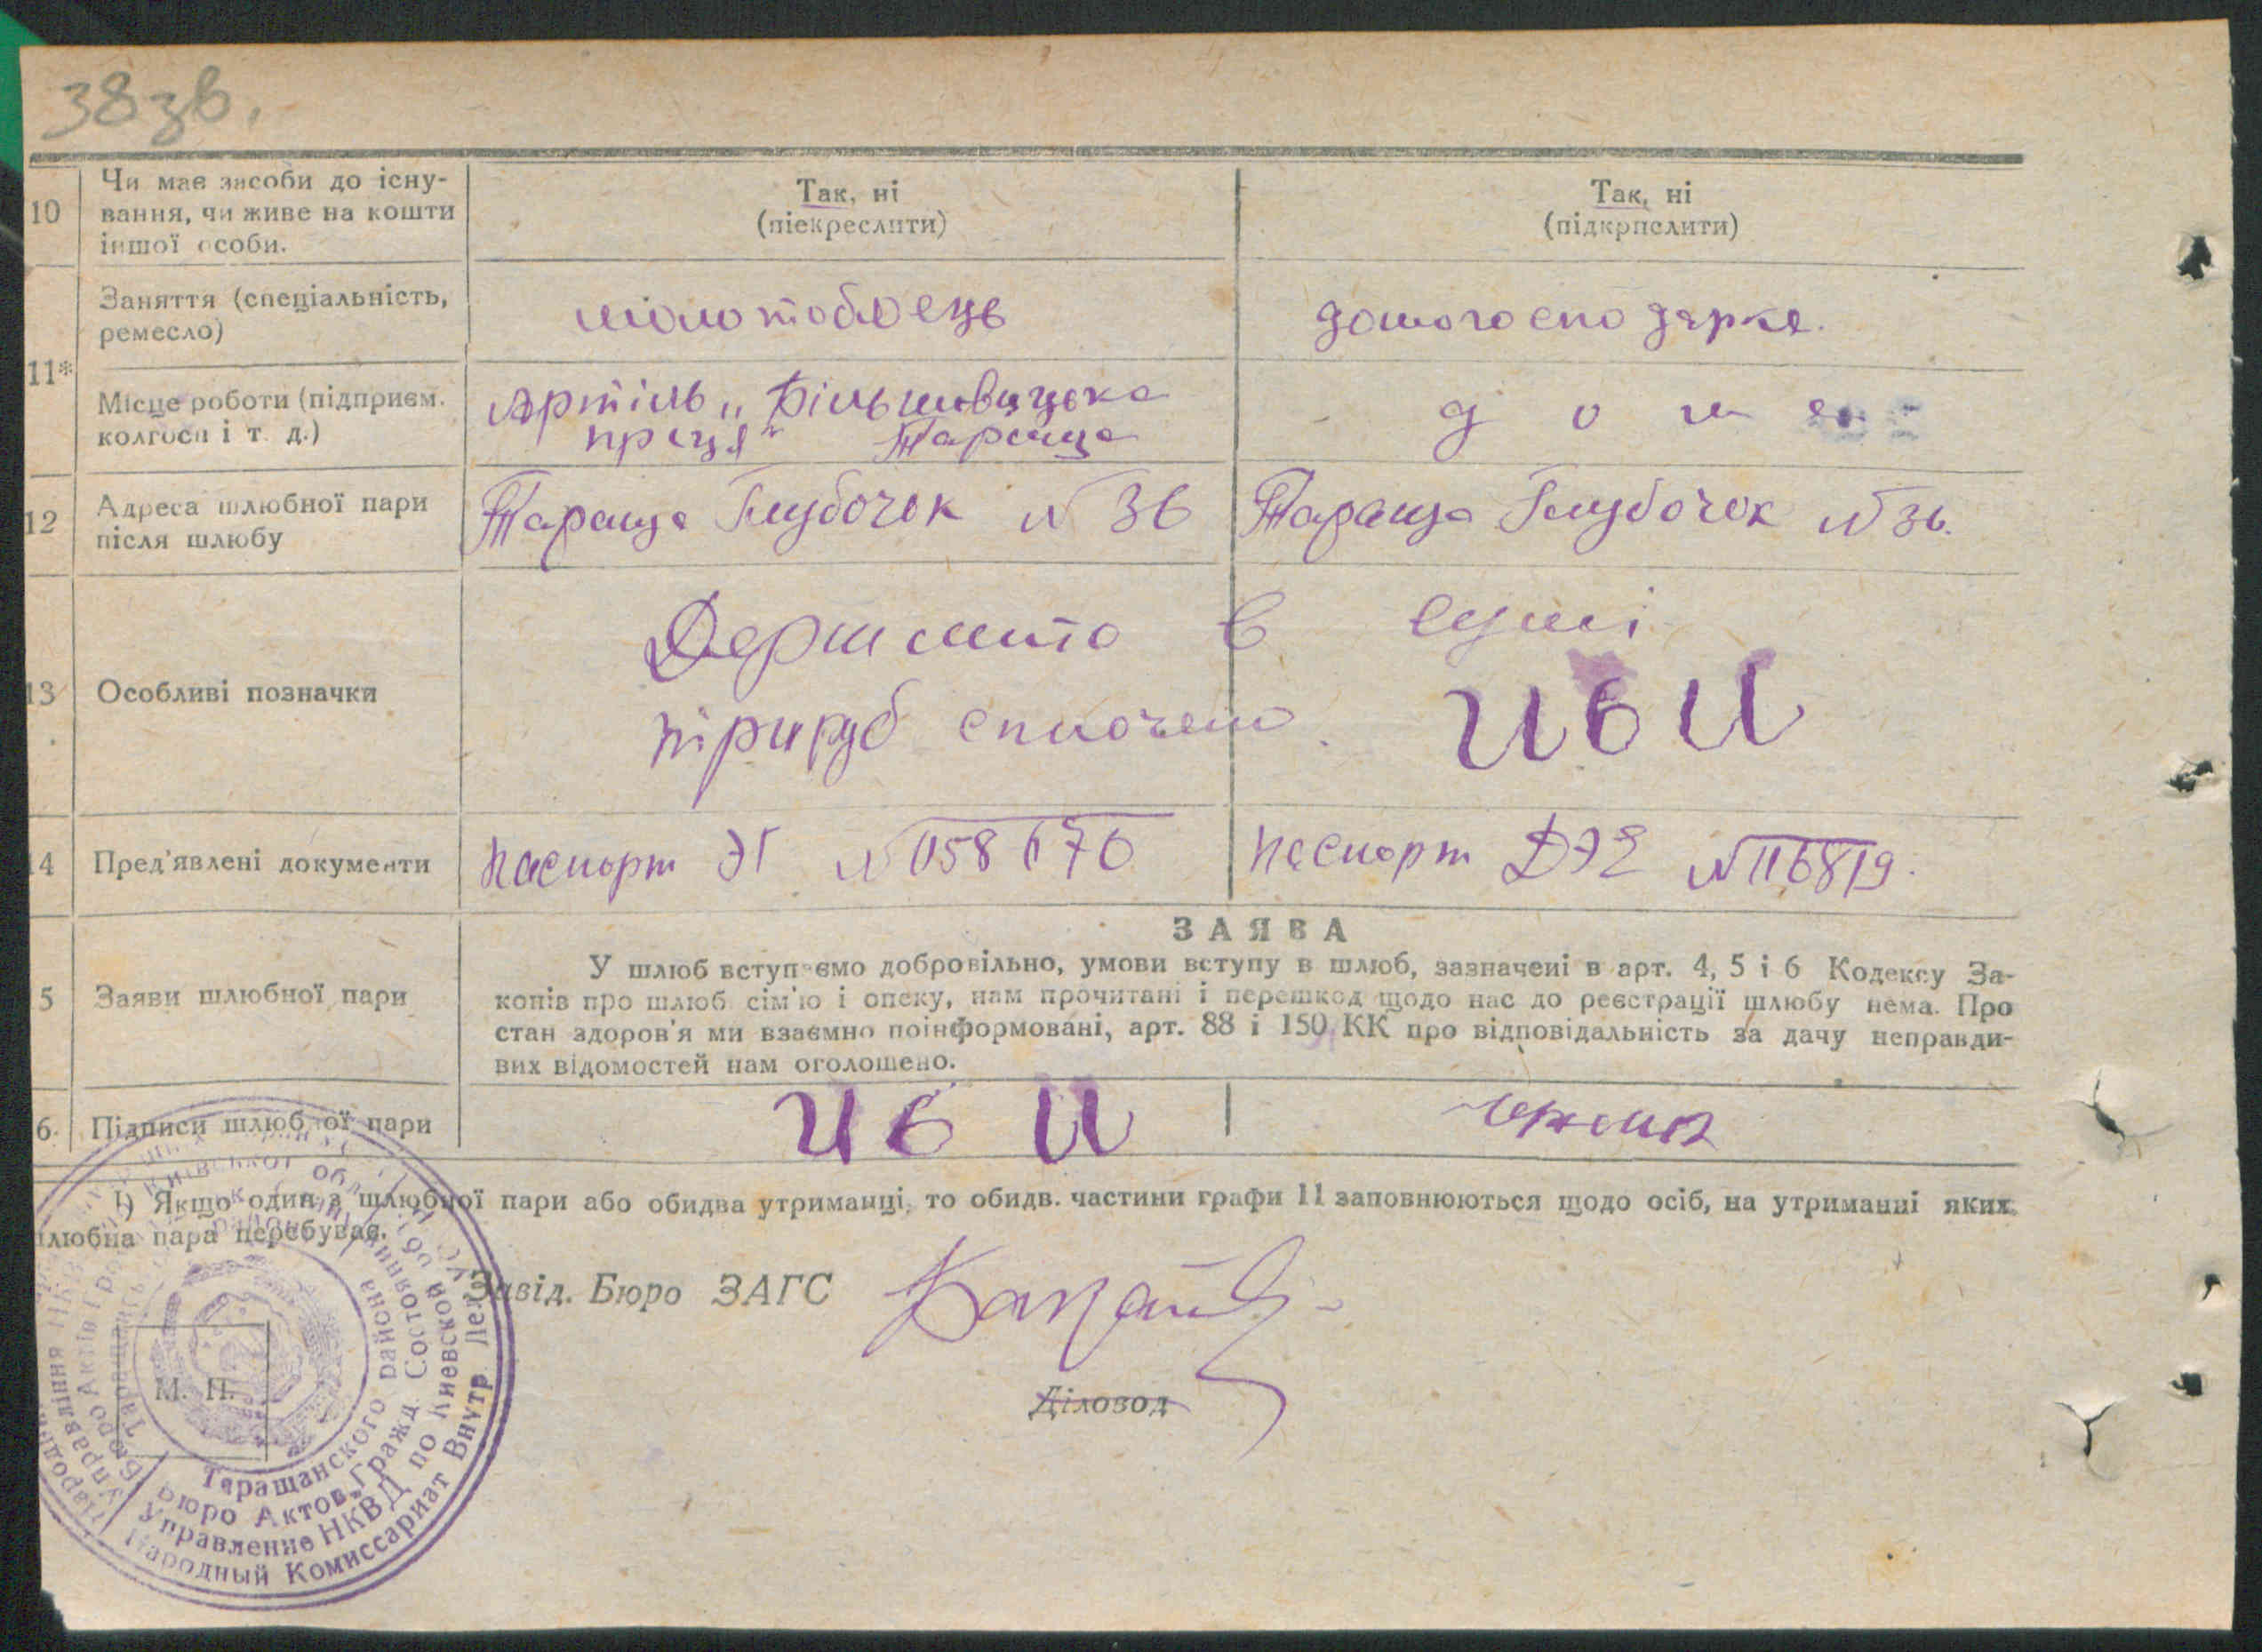 38 зв.
10 Чи має засоби до існу-
вання, чи живе на кошти
іншої особи.
Так, ні
(піекреслити)
Так, ні
(підкрпслити)
11*
Заняття (спеціальність,
ремесло)
молотобоєць
домогосподарка.
Місце роботи (підприєм.
колгосп і т. д.)
Артіль „Більшовицька
праця" Тараща
дома
12 Адреса шлюбної пари
після шлюбу
Тараща Глубочок № 36
Тараща Глубочок № 36.
13 Особливі позначки
Держ мито в сумі
три руб сплочено.
14 Пред'явлені документи
паспорт ЭГ № 058676
паспорт ДЭЕ № 116819.
5 Заяви шлюбної пари
ЗАЯВА
У шлюб вступаємо добровільно, умови вступу в шлюб, зазначені в арт. 4, 5 і 6 Кодексу За-
конів про шлюб сім'ю і опеку, нам прочитані і перешкод щодо нас до реєстрації шлюбу нема. Про
стан здоров'я ми взаємно поінформовані, арт. 88 і 150 КК про відповідальність за дачу неправди-
вих відомостей нам оголошено.
6. Підписи шлюбної пари
1) Якщо один з шлюбної пари або обидва утриманці, то обидв. частини графи 11 заповнюються щодо осіб, на утриманні яких
шлюбна пара перебуває.
Завід. Бюро ЗАГС
Діловод
М. П.
Таращанского района
Бюро Актов Гражд. Состояния
Управление НКВД по Киевской
Народный Комиссариат Внутр. Дел